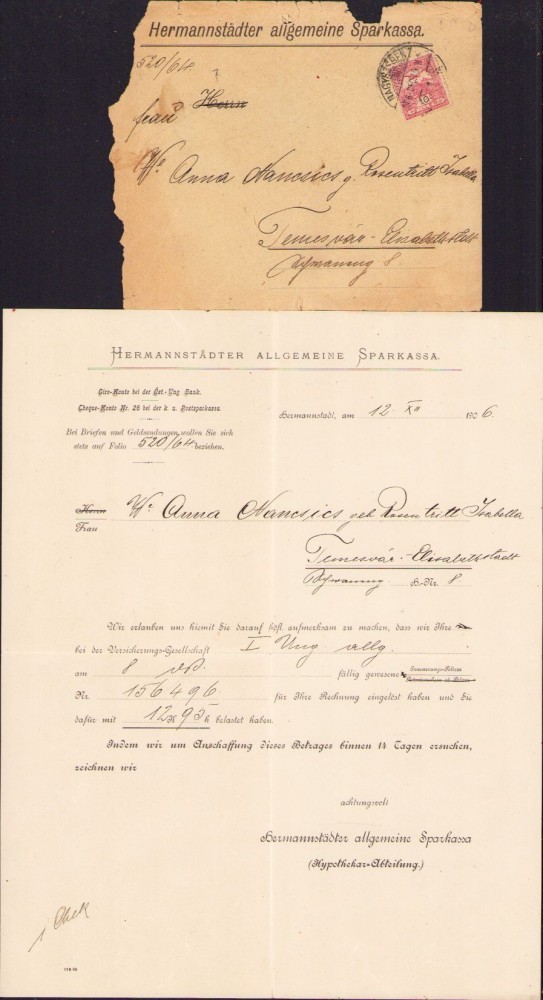 Hermannstädter allgemeine Sparkassa.
520/64
Frau Herrn
We Anna Nancsics g. Rosentritt Isabella
Temesvár-Elisabethstadt
8
NAGYSZEBEN
HERMANNSTÄDTER ALLGEMEINE SPARKASSA.
Giro-Konto bei der Öst.-Ung Bank.
Cheque-Konto Nr. 26 bei der k. u. Postsparkassa
Hermannstadt, am 12. XII 1906.
Bei Briefen und Geldsendungen wollen Sie sich
stets auf Folio 520/64 beziehen.
Herrn We Anna Nancsics geb Rosentritt Isabella
Frau
Temesvár-Elisabethstadt
H-Nr. 8.
Wir erlauben uns hiemit Sie darauf höfl. aufmerksam zu machen, dass wir Ihre
bei der Versicherungs-Gesellschaft I Ung allg.
am 8 fällig gewesene
Nr. 156496 für Ihre Rechnung eingelöst haben und Sie
dafür mit 12 K 95 h belastet haben.
Indem wir um Anschaffung dieses Betrages binnen 14 Tagen ersuchen,
zeichnen wir
achtungsvoll
Hermannstädter allgemeine Sparkassa
(Hypothekar-Abteilung.)
1 Chek